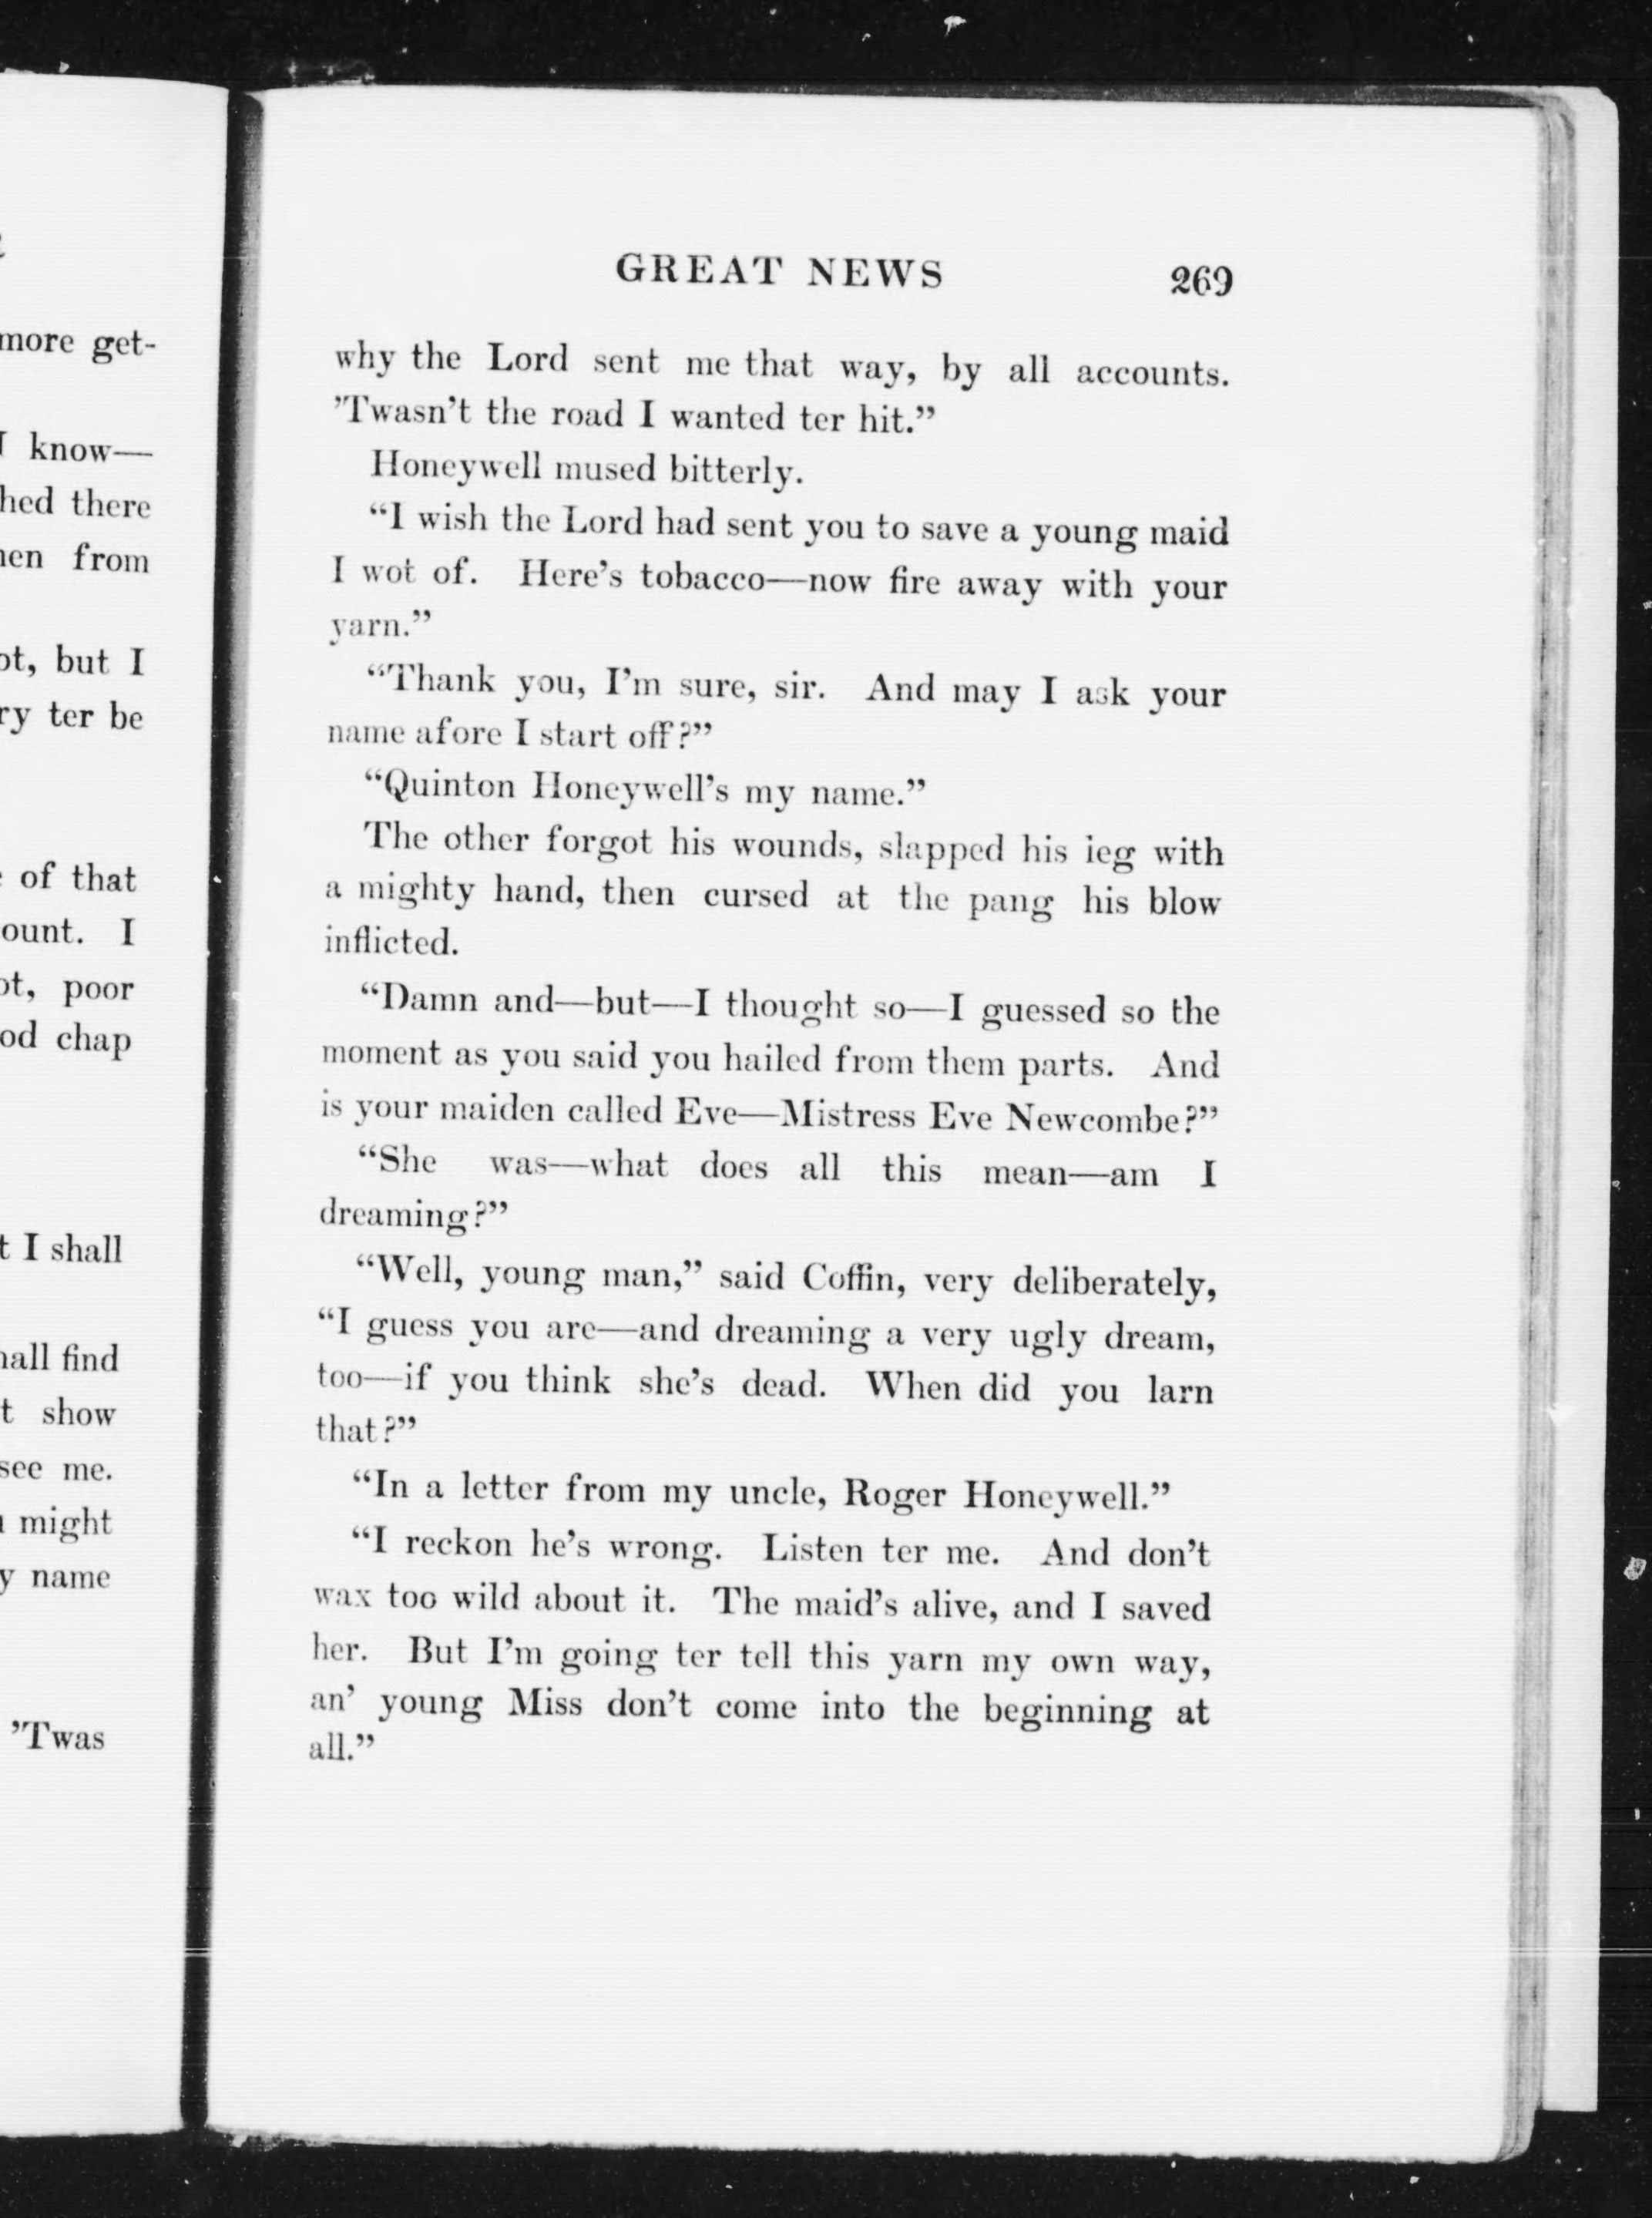 more get-
I know—
hed there
from
but I
ry ter be
of that
ount. I
poor
od chap
t I shall
find
t show
see me.
might
y name
'Twas
GREAT NEWS 269
why the Lord sent me that way, by all accounts.
'Twasn't the road I wanted ter hit.”
Honeywell mused bitterly.
“I wish the Lord had sent you to save a young maid
I wot of. Here's tobacco—now fire away with your
yarn.”
“Thank you, I'm sure, sir. And may I ask your
name afore I start off?”
“Quinton Honeywell's my name.”
The other forgot his wounds, slapped his leg with
a mighty hand, then cursed at the pang his blow
inflicted.
“Damn and—but—I thought so—I guessed so the
moment as you said you hailed from them parts. And
is your maiden called Eve—Mistress Eve Newcombe?”
“She was—what does all this mean—am I
dreaming?”
“Well, young man,” said Coffin, very deliberately,
“I guess you are—and dreaming a very ugly dream,
too—if you think she's dead. When did you larn
that?”
“In a letter from my uncle, Roger Honeywell.”
“I reckon he's wrong. Listen ter me. And don't
wax too wild about it. The maid's alive, and I saved
her. But I'm going ter tell this yarn my own way,
an' young Miss don't come into the beginning at
all.”